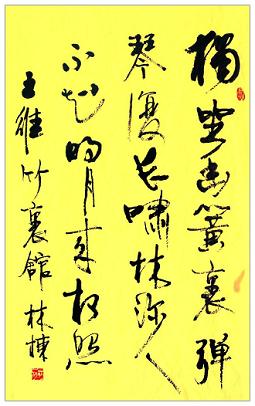 獨坐幽篁裏弹
琴復长嘯林深人
不知明月来相照
王維竹裏館 林棟